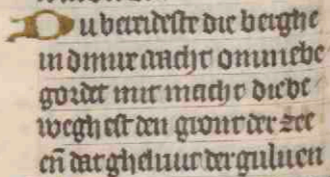 Du bereideste die berghe
in dinur cracht ommebe
gordet mit macht die be
weghest den gront der zee
en̄ dat gheluut der guluen